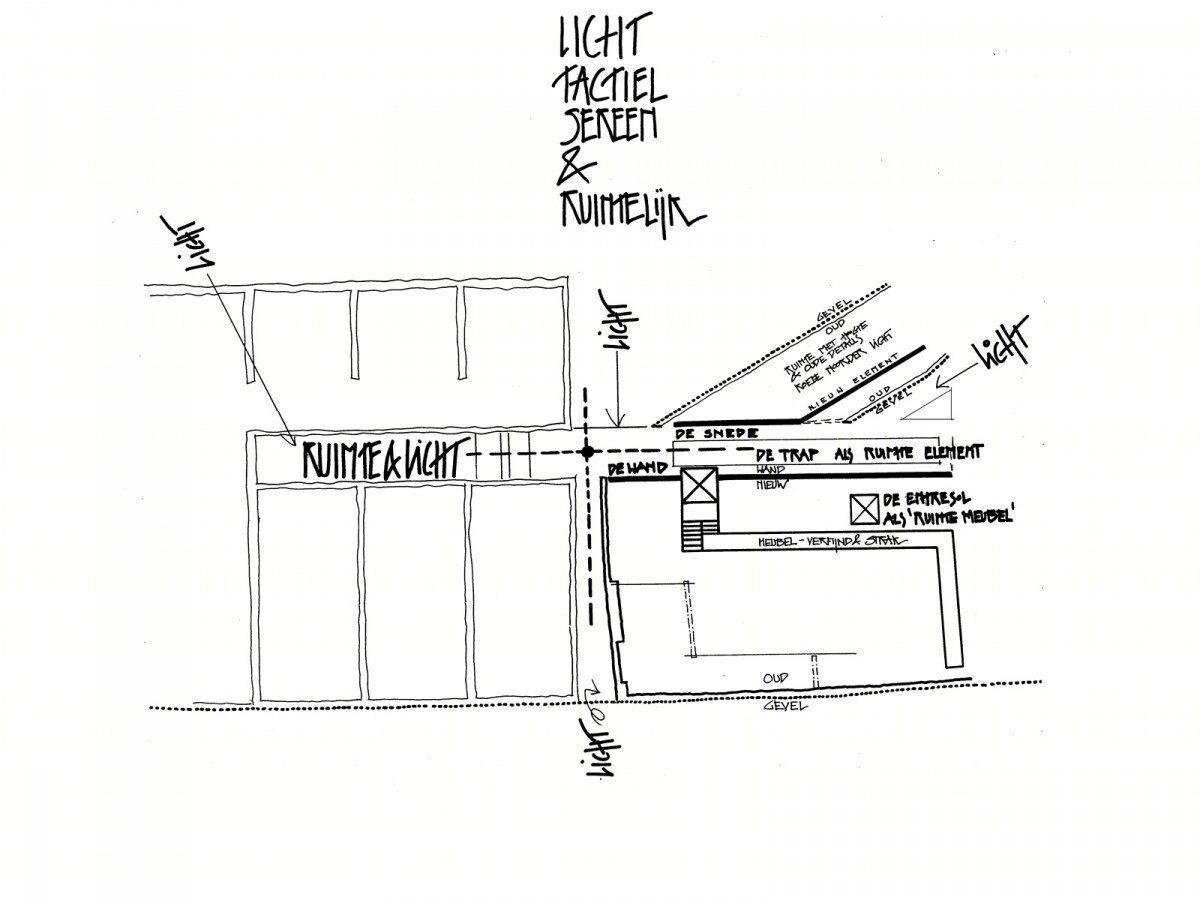 LICHT
TACTIEL
SEREEN
&
RUIMTELIJK
LICHT
LICHT
GEVEL
OUD
RUIMTE MET HOOGTE
& OUDE DETAILS
KOELE NOORDER LICHT
NIEUW ELEMENT
OUD
GEVEL
LICHT
DE SNEDE
RUIMTE & LICHT
DE TRAP ALS RUIMTE ELEMENT
DE WAND
WAND
NIEUW
DE ENTRESOL
ALS 'RUIMTE MEUBEL'
MEUBEL - VERFIJND & STRAK
OUD
GEVEL
LICHT